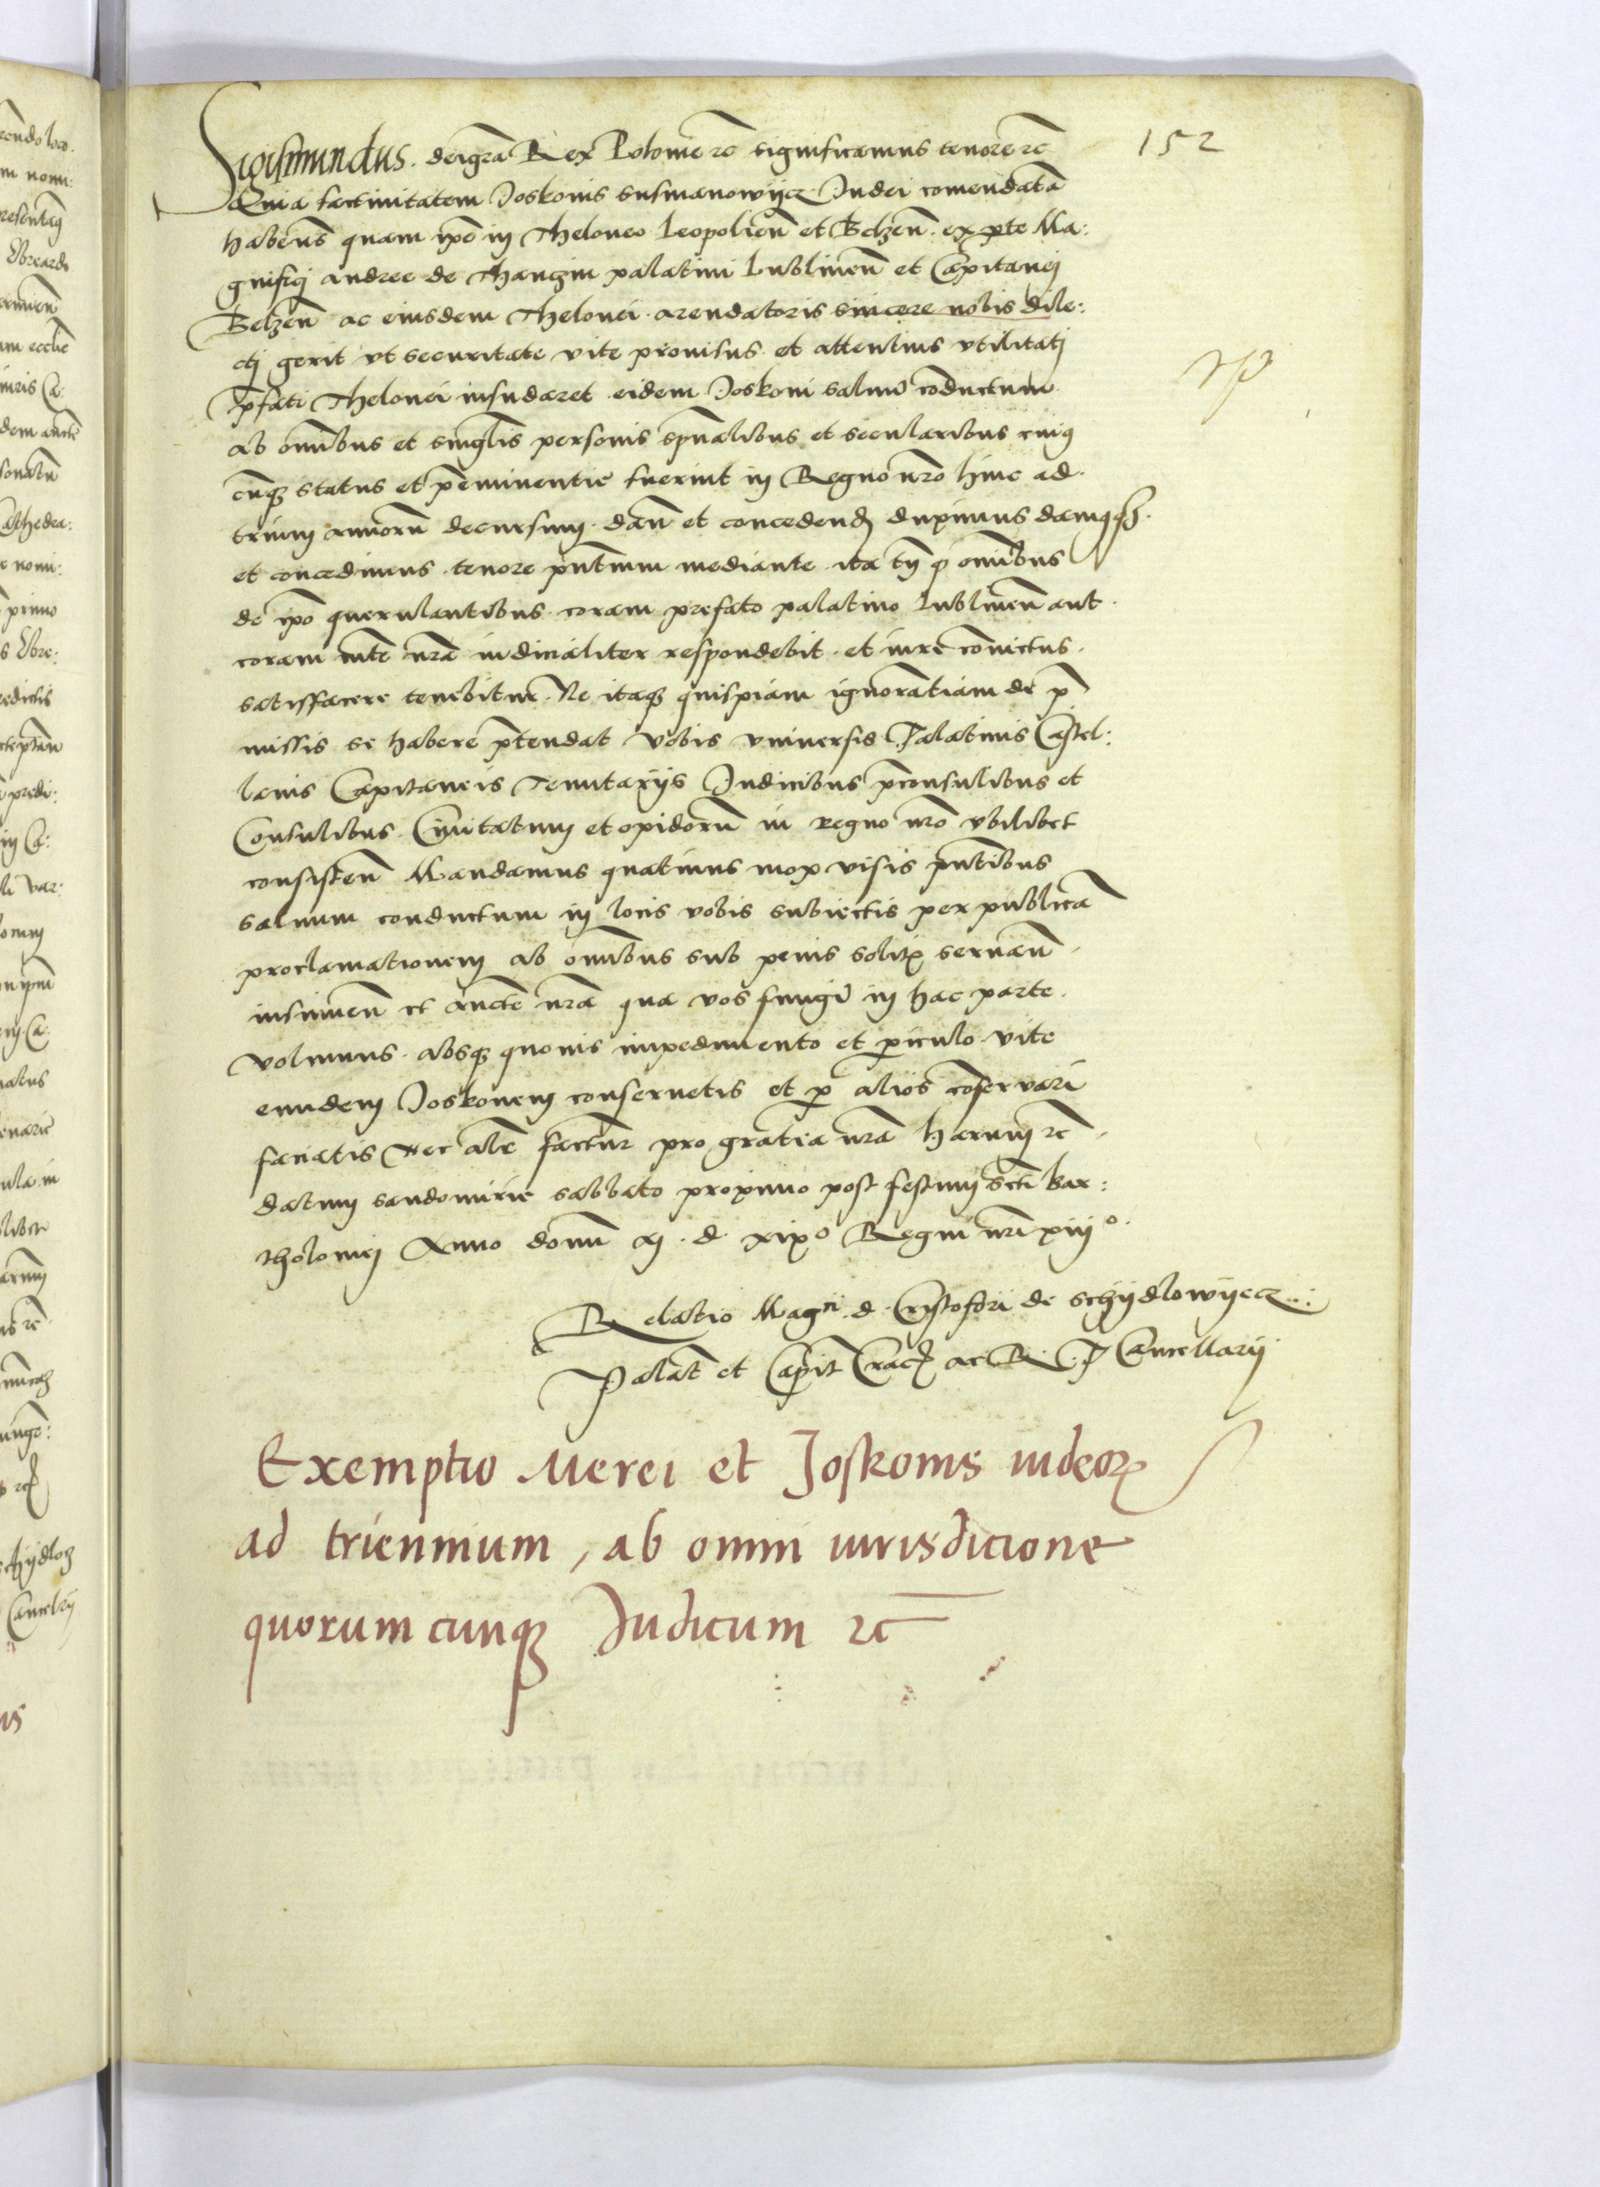 152
Sigismundus. deigra Rex Polonie rc significamus tenore rc
Quia factivitatem Joskonis susmanowijcz Judei comendata
habens quam ipse in Theloneo Leopolien et Belzen. ex pte Ma:
gnifici andree de Thanczin palatini Lublinen et Capitanei
Belzen ac eiusdem Thelonei arendatoris sincere nobis dile:
cti gerit vt securitate vite provisus et attentius vtilitati
pfati Thelonei insudaret eidem Joskoni salvu coductum
ab omibus et singlis personis spualibus et secularibus cuius
cunqz status et peminentie fuerint in Regno nro hinc ad
trium annorum decursum dan et conceden duximus damusqz
et concedimus tenore pntium mediante ita tn q omibus
de ipo querulantibus coram prefato palatino Lublinen aut
coram mte nra iudicialiter respondebit et iure convictus
satisfacere tenebitur. Ne itaqz quispiam ignorantiam de p
missis se habere ptendat vobis vniversis Palatinis Castel:
lanis Capitaneis Tenutarijs Judicibus pconsulibus et
Consulibus Civitatum et opidorum in regno nro vbilibet
consisten Mandamus quatinus mox visis pntibus
salvum conductum in locis vobis subiectis per publica
proclamationem ab omibus sub penis solitis servan
insinuen et aucte nra qua vos fungi in hac parte
volumus absqz quovis impedimento et piculo vite
eundem Joskonem conservetis et p alios coservari
faciatis Nec alr factur pro gratia nra harum rc
datum sandomirie sabbato proximo post festum scti bar:
tholomei Anno domi M. d. xixo Regni nri xiijo
Relatio Magci d. Cristofori de schijdlowijecz
Palat et Capit Crac ac R. P Cancellarij
Exemptio Merei et Joskonis iudeor
ad triennium, ab omni iurisdicione
quorumcunqz Judicum rc